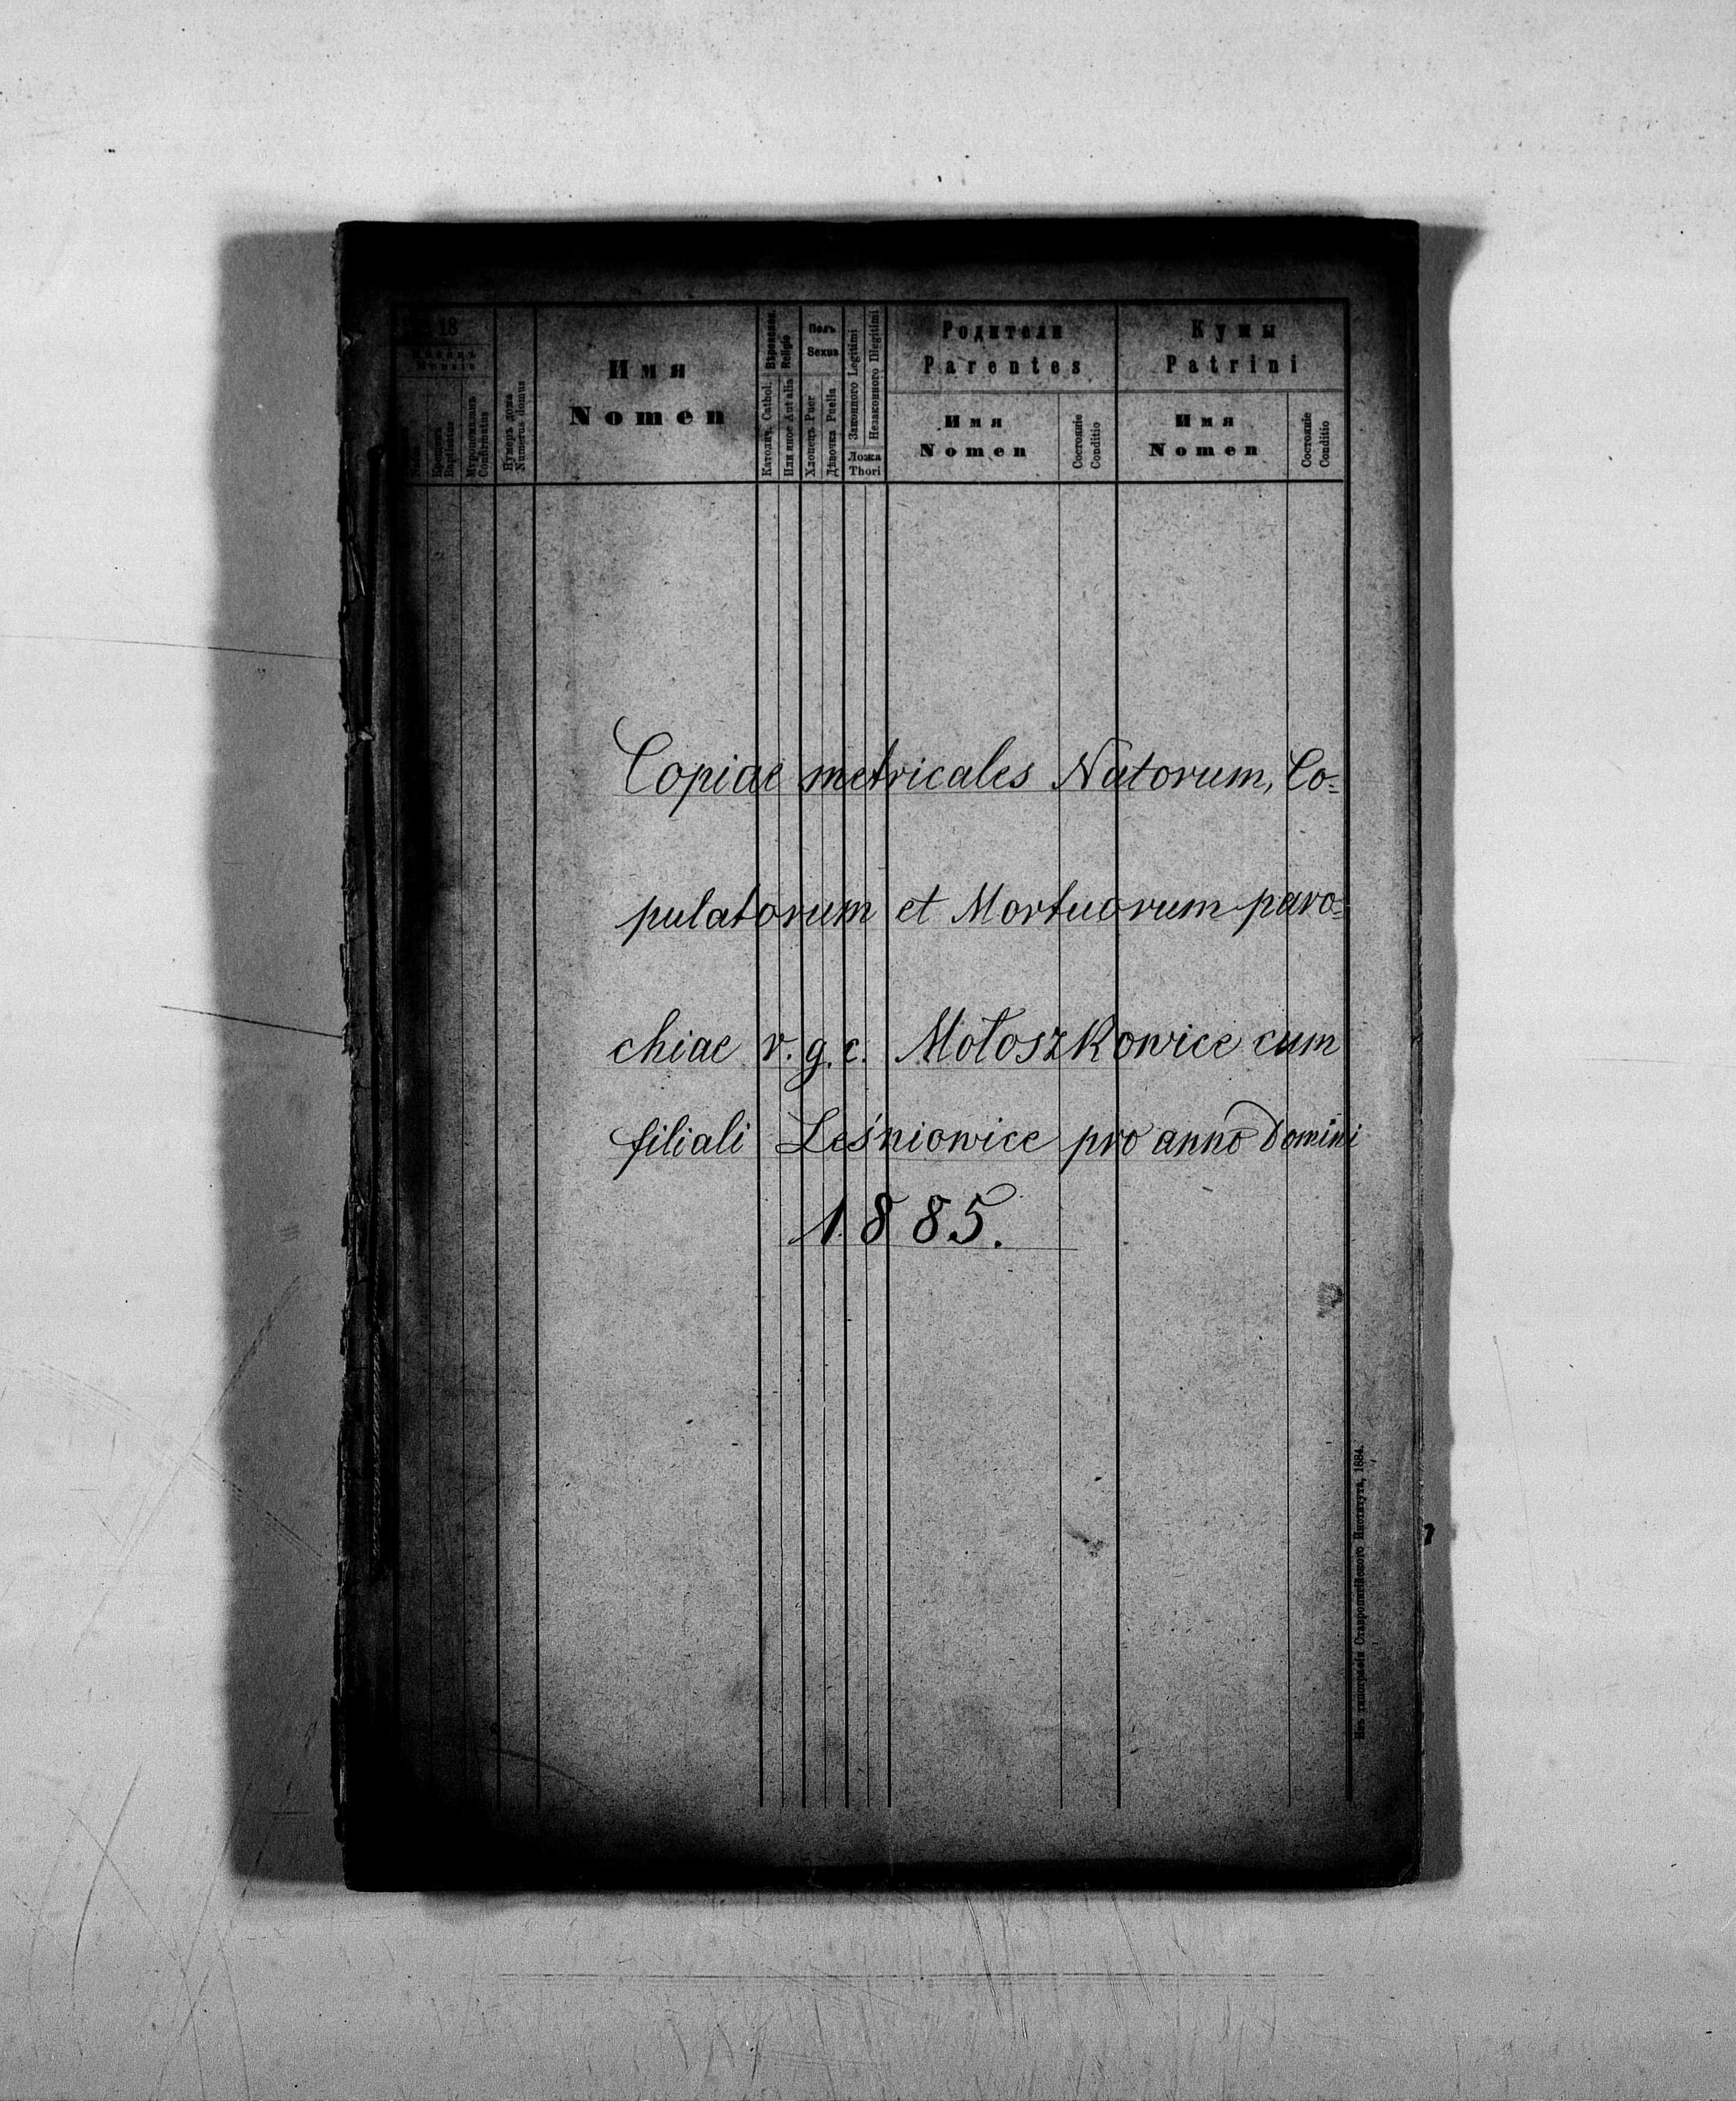 18
Мѣсяцъ
Mensis
Крещенъ
Baptisatus
Мѵропомазанъ
Confirmatus
Нумеръ дома
Numerus domus
Имя
Nomen
Вѣроисповѣд.
Religio
Католич. Cathol.
Или иное Aut alia
Полъ
Sexus
Хлопецъ Puer
Дѣвочка Puella
Законного Legitimi
Незаконного Illegitimi
Ложа
Thori
Родители
Parentes
Имя
Nomen
Состояніе
Conditio
Кумы
Patrini
Имя
Nomen
Состояніе
Conditio
Copiae metricales Natorum, Co=
pulatorum et Mortuorum paro=
chiae r. g. c. Mołoszkowice cum
filiali Leśniowice pro anno Domini
1885.
Изъ типографіи Ставропигійского Института, 1884.